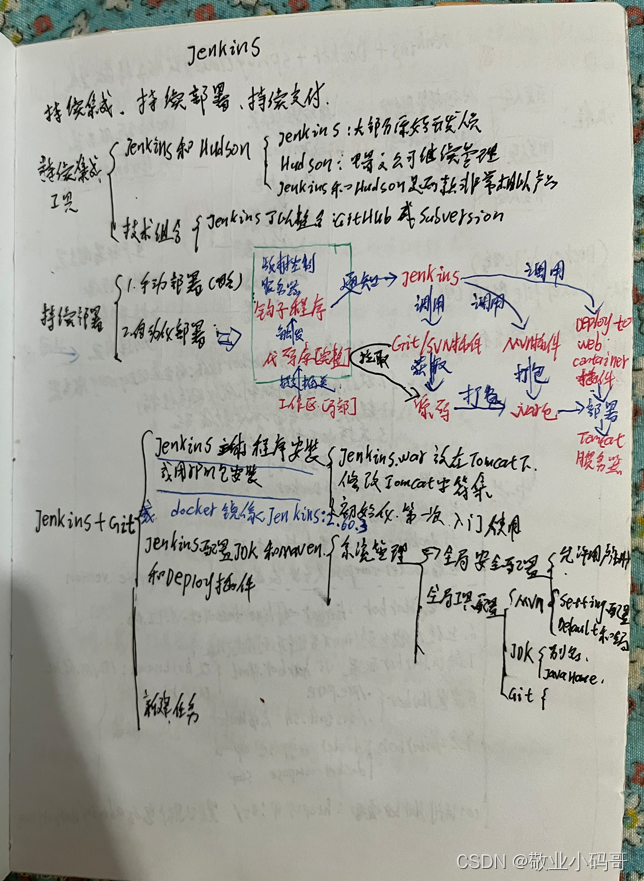 Jenkins
持续集成、持续部署、持续交付.
持续集成
工具
Jenkins和Hudson
Jenkins:大部分原始开发人员
Hudson:甲骨文公司继续管理
Jenkins和Hudson是两款非常相似产品
技术组合
Jenkins可以整合GitHub或Subversion
持续部署
1.手动部署
2.自动化部署
版本控制
服务器
钩子程序
触发
代码库
提交推送
工作区
通知
Jenkins
调用
调用
调用
拉取
Git/SVN插件
获取
源码
打包
MVN插件
打包
war包
Deploy to
web
container
插件
部署
Tomcat
服务器
Jenkins+Git
Jenkins主程序安装
或用rpm包安装
Jenkins.war放在Tomcat下.
修改Tomcat字符集
或 docker镜像Jenkins:2.60.3
初始化.第一次入门使用
Jenkins配置JDK和maven
和Deploy插件
系统管理
全局安全配置
允许用户注册
全局工具配置
MVN
Setting配置
Default
JDK
别名.
Java Home.
Git
新建任务
CSDN @敬业小码哥